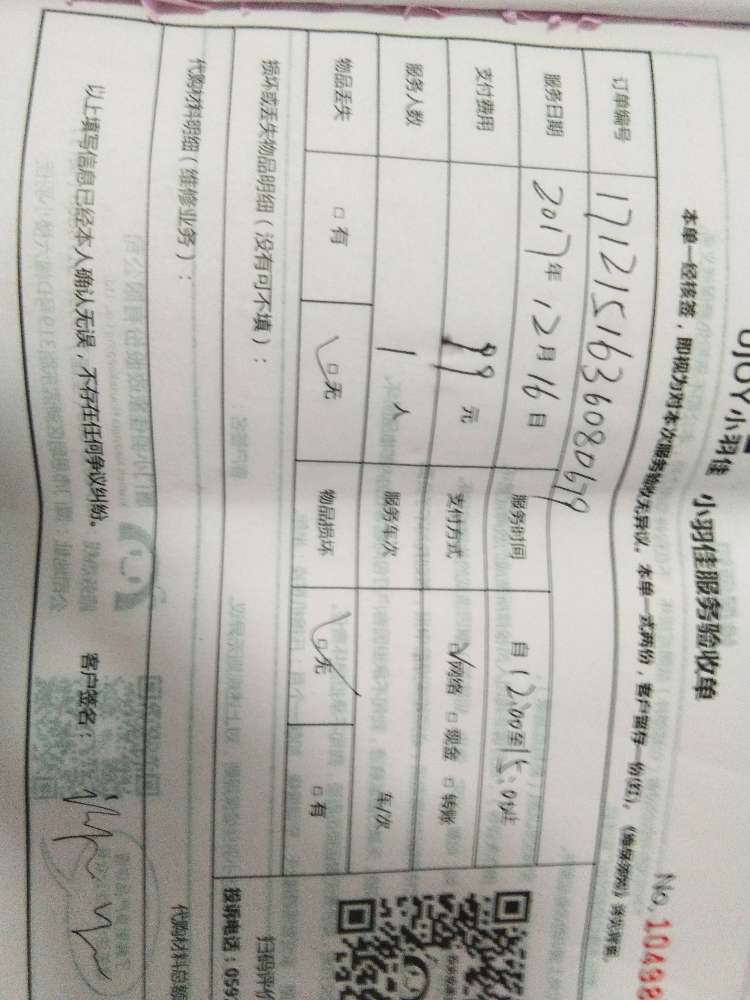 小羽佳 小羽佳服务验收单
No.10498
本单一经接签，即视为对本次服务验收无异议。本单一式两份，客户留存一份(红)。
订单编号 171215163608067​9
服务日期 2017年12月16日 服务时间 自12:00至15:00止
支付费用 99元 支付方式 ☑网络 □现金 □转账
服务人数 1人 服务车次 车/次
物品丢失 □有 ☑无 物品损坏 ☑无 □有
损坏或丢失物品明细（没有可不填）：
扫码评价
投诉电话：059
代购材料明细（维修业务）：
代购材料总额
以上填写信息已经本人确认无误，不存在任何争议纠纷。 客户签名：